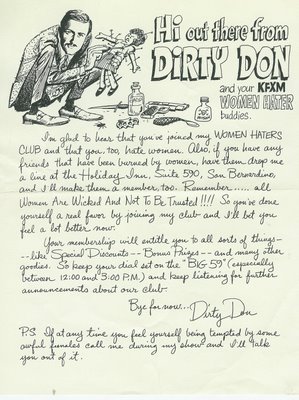 Hi out there from
DIRTY DON
and your KFXM
WOMEN HATER
buddies.
I'm glad to hear that you've joined my WOMEN HATERS
CLUB and that you, too, hate women. Also, if you have any
friends that have been burned by women, have them drop me
a line at the Holiday Inn, Suite 590, San Bernardino,
and I'll make them a member, too. Remember..... all
Women Are Wicked And Not To Be Trusted!!!! So you've done
yourself a real favor by joining my club and I'll bet you
feel a lot better now.
Your membership will entitle you to all sorts of things--
--like Special Discounts -- Bonus Prizes -- and many other
goodies. So keep your dial set on the "BIG 59" (especially
between 12:00 and 3:00 P.M.) and keep listening for further
announcements about our club.
Bye for now... Dirty Don
P.S. If at any time you feel yourself being tempted by some
awful females call me during my show and I'll talk
you out of it.